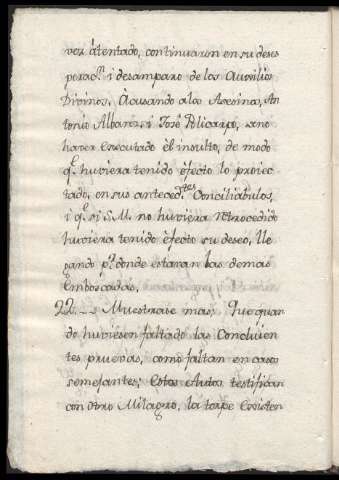 vez atentado, continuaron en su deses
perac.ⁿ i desamparo de los Auxilios
Divinos, Acusando a los Asesinos, An
tonio Albarez, i José Policarpo, de no
haver executado el insulto, de modo
q.ᵉ huviera tenido efecto lo proiec
tado, en sus anteced.ᵗᵉˢ Conciliabulos,
i q.ᵉ si S.M. no huviera retrocedido
huviera tenido efecto su deseo, lle
gando p.ʳ donde estavan las demas
Emboscadas.
22.__ Muestrase mas: Que quan
do huviesen faltado las concluien
tes pruevas, como faltan en casos
semejantes; Estos Autos testifican
con otro Milagro, la torpe Existen